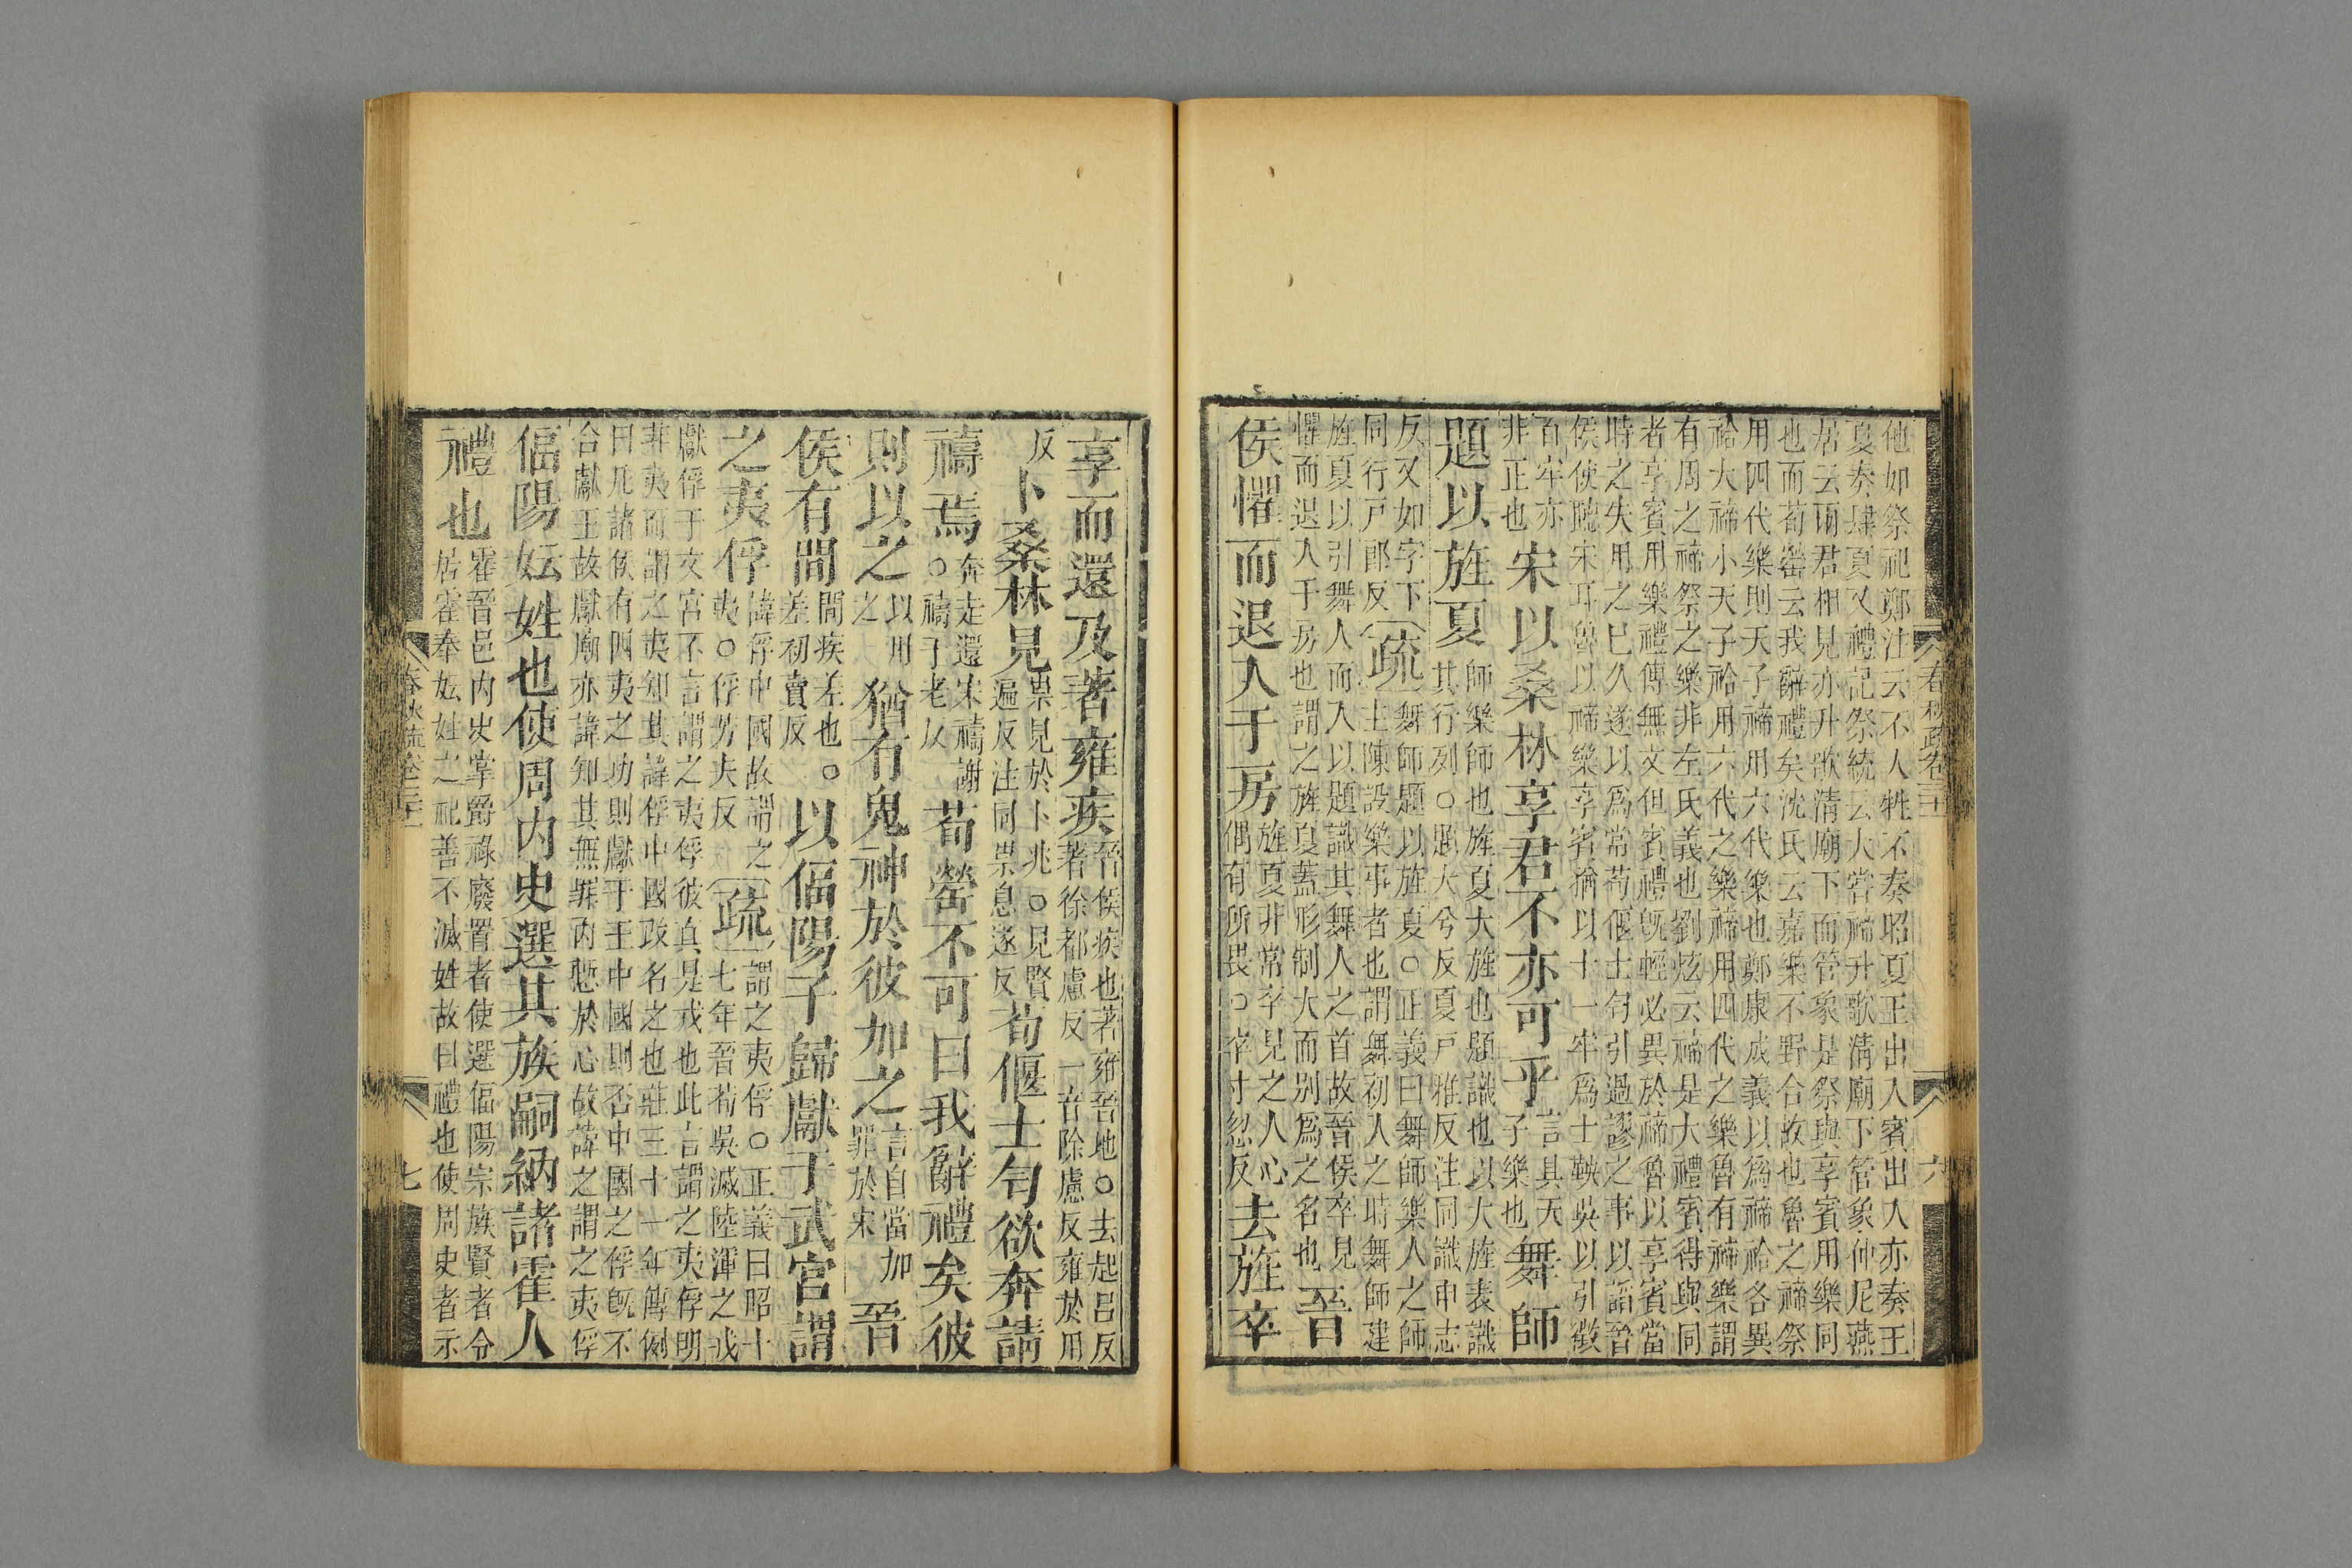 他如祭祀鄭注云不人牲不奏昭夏正出入賓出入亦奏王
夏奏肆夏又禮記祭統云大嘗禘升歌清廟下管象仲尼燕
居云兩君相見亦升歌清廟下而管象是祭與享賓用樂同
也而荀罃云我辭禮矣沈氏云嘉樂不野合故也魯之禘祭
用四代樂則天子禘用六代樂也鄭康成義以爲禘祫各異
祫大禘小天子祫用六代之樂禘用四代之樂魯有禘樂謂
有周之禘祭之樂非左氏義也劉炫云禘是大禮賓得與同
者享賓用樂禮傳無文但賓禮旣輕必異於禘魯以享賓當
時之失用之已久遂以爲常荀偃士匄引過謬之事以諂晉
侯使聽宋耳魯以禘樂享賓猶以十一牢爲士鞅吳以引徵
百牢亦
非正也
宋以桑林享君不亦可乎
言具天
子樂也
舞師
題以旌夏
師樂師也旌夏大旌也題識也以大旌表識
其行列○題大兮反夏戸雅反注同識申志
反又如字下
同行戸郎反
疏
舞師題以旌夏○正義曰舞師樂人之師
主陳設樂事者也謂舞初入之時舞師建
旌夏以引舞人而入以題識其舞人之首故晉侯卒見
懼而退入于房也謂之旌夏蓋形制大而別爲之名也
晉
侯懼而退入于房
旌夏非常卒見之人心
偶有所畏○卒寸忽反
去旌卒
春秋疏卷三十一
六
享而還及著雍疾
晉侯疾也著雍晉地○去起呂反
著徐都慮反一音除慮反雍於用
反
卜桑林見
祟見於卜兆○見賢
遍反注同祟息遂反
荀偃士匄欲奔請
禱焉
奔走還宋禱謝
○禱丁老反
荀罃不可曰我辭禮矣彼
則以之
以用
之
猶有鬼神於彼加之
言自當加
罪於宋
晉
侯有間
間疾差也○
差初賣反
以偪陽子歸獻于武宮謂
之夷俘
諱俘中國故謂之
夷○俘芳夫反
疏
謂之夷俘○正義曰昭十
七年晉荀吳滅陸渾之戎
獻俘于文宮不言謂之夷俘彼真是戎也此言謂之夷俘明
非夷而謂之夷知其諱俘中國改名之也莊三十一年傳例
曰凡諸侯有四夷之功則獻于王中國則否中國之俘旣不
合獻王故獻廟亦諱知其無罪內慙於心故諱之謂之夷俘
偪陽妘姓也使周內史選其族嗣納諸霍人
禮也
霍晉邑內史掌爵祿廢置者使選偪陽宗族賢者令
居霍奉妘姓之祀善不滅姓故曰禮也使周史者示
春秋疏卷三十一
七